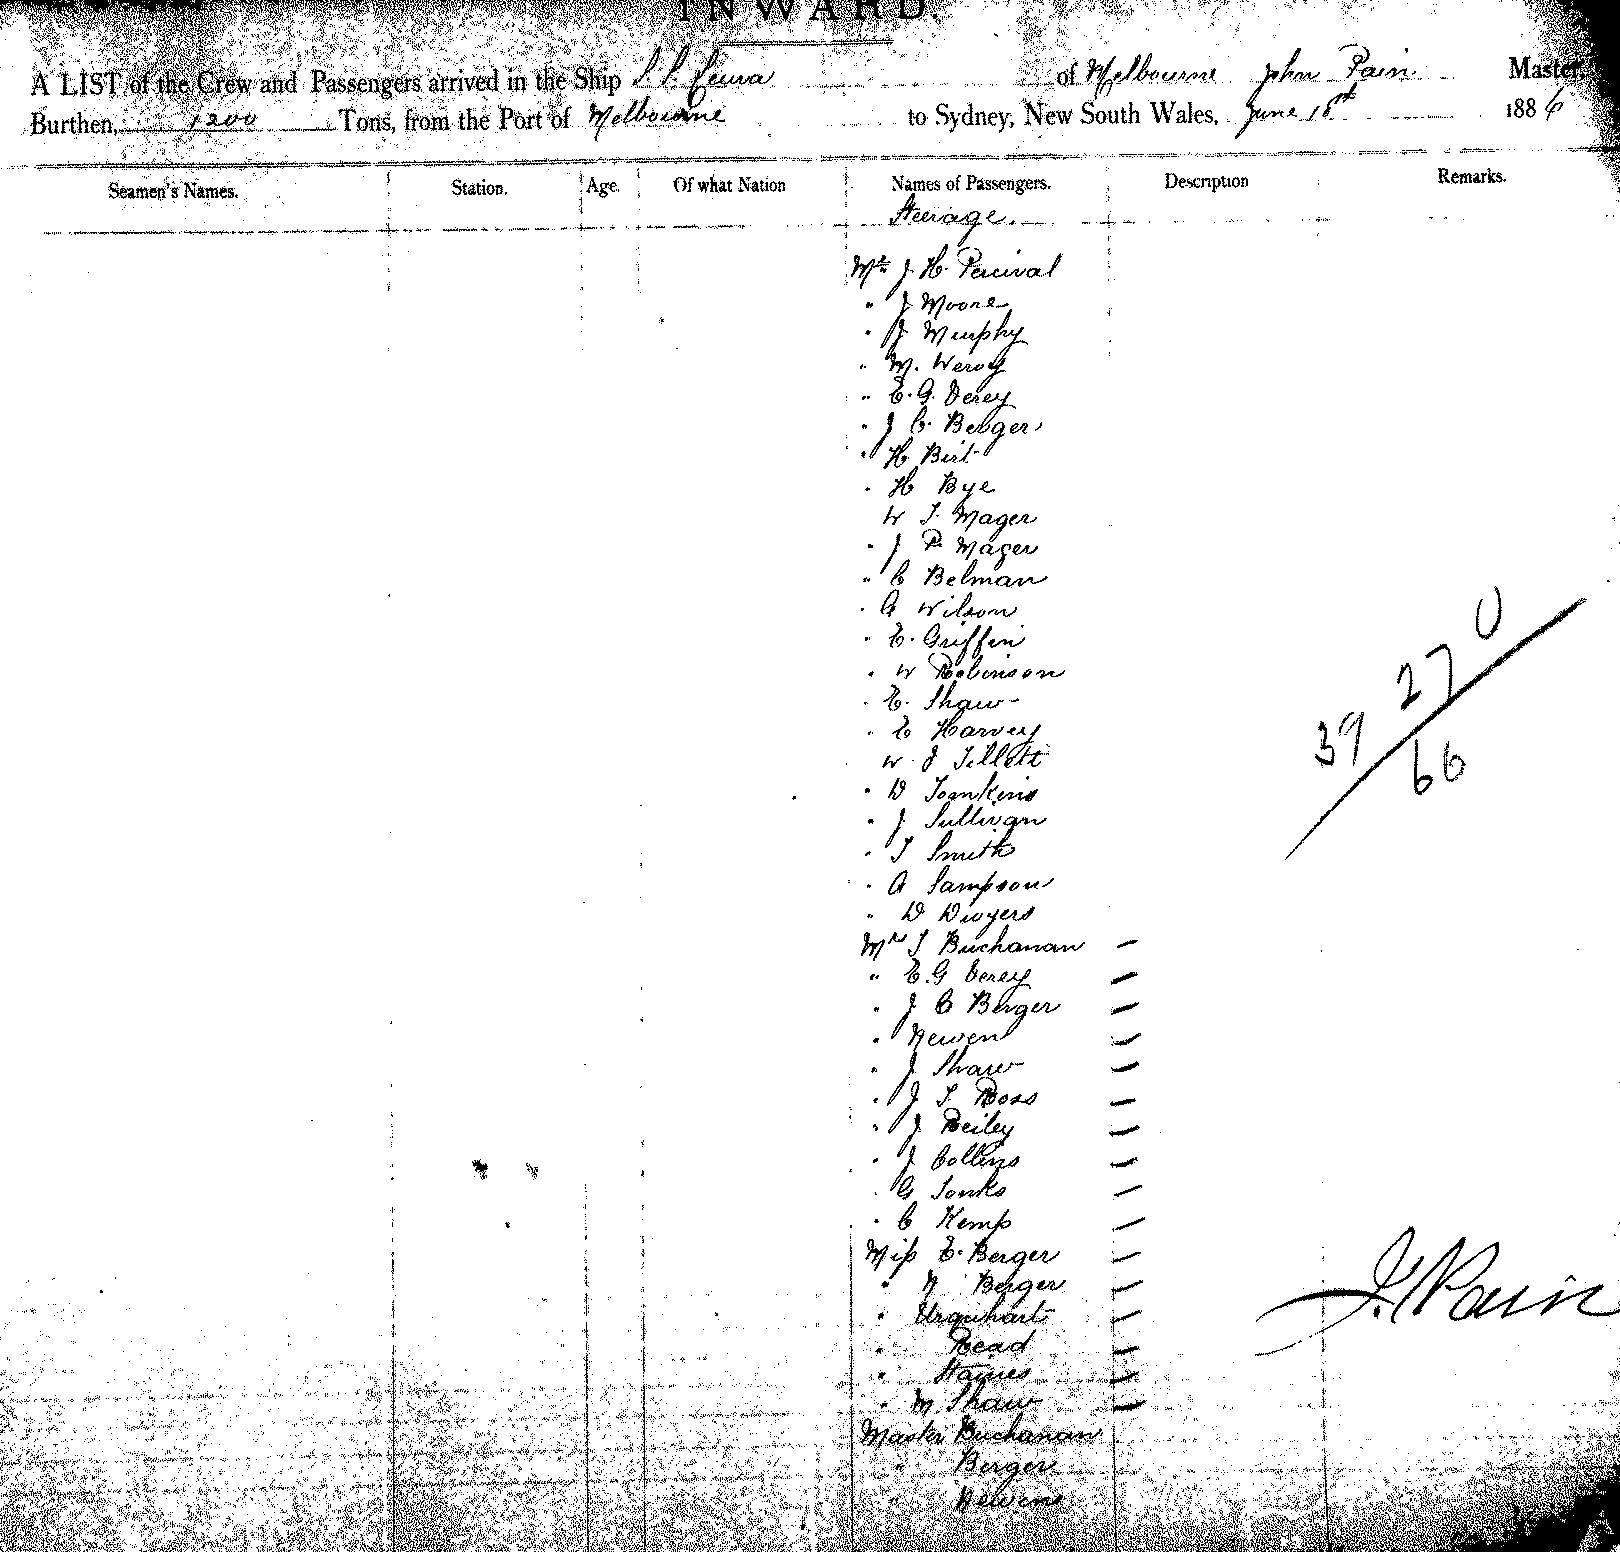 INWARD.
A LIST of the Crew and Passengers arrived in the Ship S. S. Leura of Melbourne John Pain Master
Burthen, 1200 Tons, from the Port of Melbourne to Sydney, New South Wales, June 18th 1886
Seamen's Names. Station. Age. Of what Nation Names of Passengers. Description Remarks.
Steerage.
Mr J. H. Percival
" J Moore
" J Murphy
" M.
" E. G. Verey
" J C. Berger
" H Birt
" H Bye
W T. Mager
" J P Mager
" C Belman
" A Wilson
" E. Griffin
" W Robinson
" E. Shaw
" E Harvey
W J Tillett
" D Tomkins
" J Sullivan
" T Smith
" A Sampson
" D Dwyers
Mrs T Buchanan
" E. G Verey
" J C Berger
" Newen
" J Shaw
" J T. Ross
" J Reiley
" J Collins
G Tonks
" C Kemp
Miss E. Berger
" N Berger
" Urquhart
" Read
" Staines
" M Shaw
Master Buchanan
" Berger
Newen
0
27
39
66
J. Pain